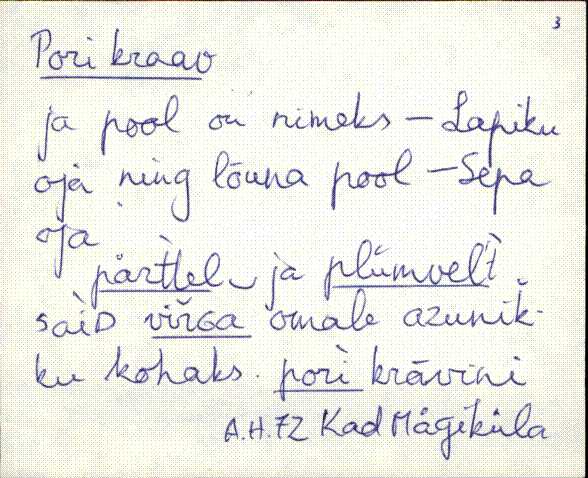 3
Pori kraav
ja pool on nimeks – Lapiku
oja ning lõuna pool – Sepa
oja
pàrt̀tel ja plǜmvel't
said vir̆ga omale azunik̆-
ku kohaks. pori krāvini
A.H. 72 Kad Mäg̀iküla